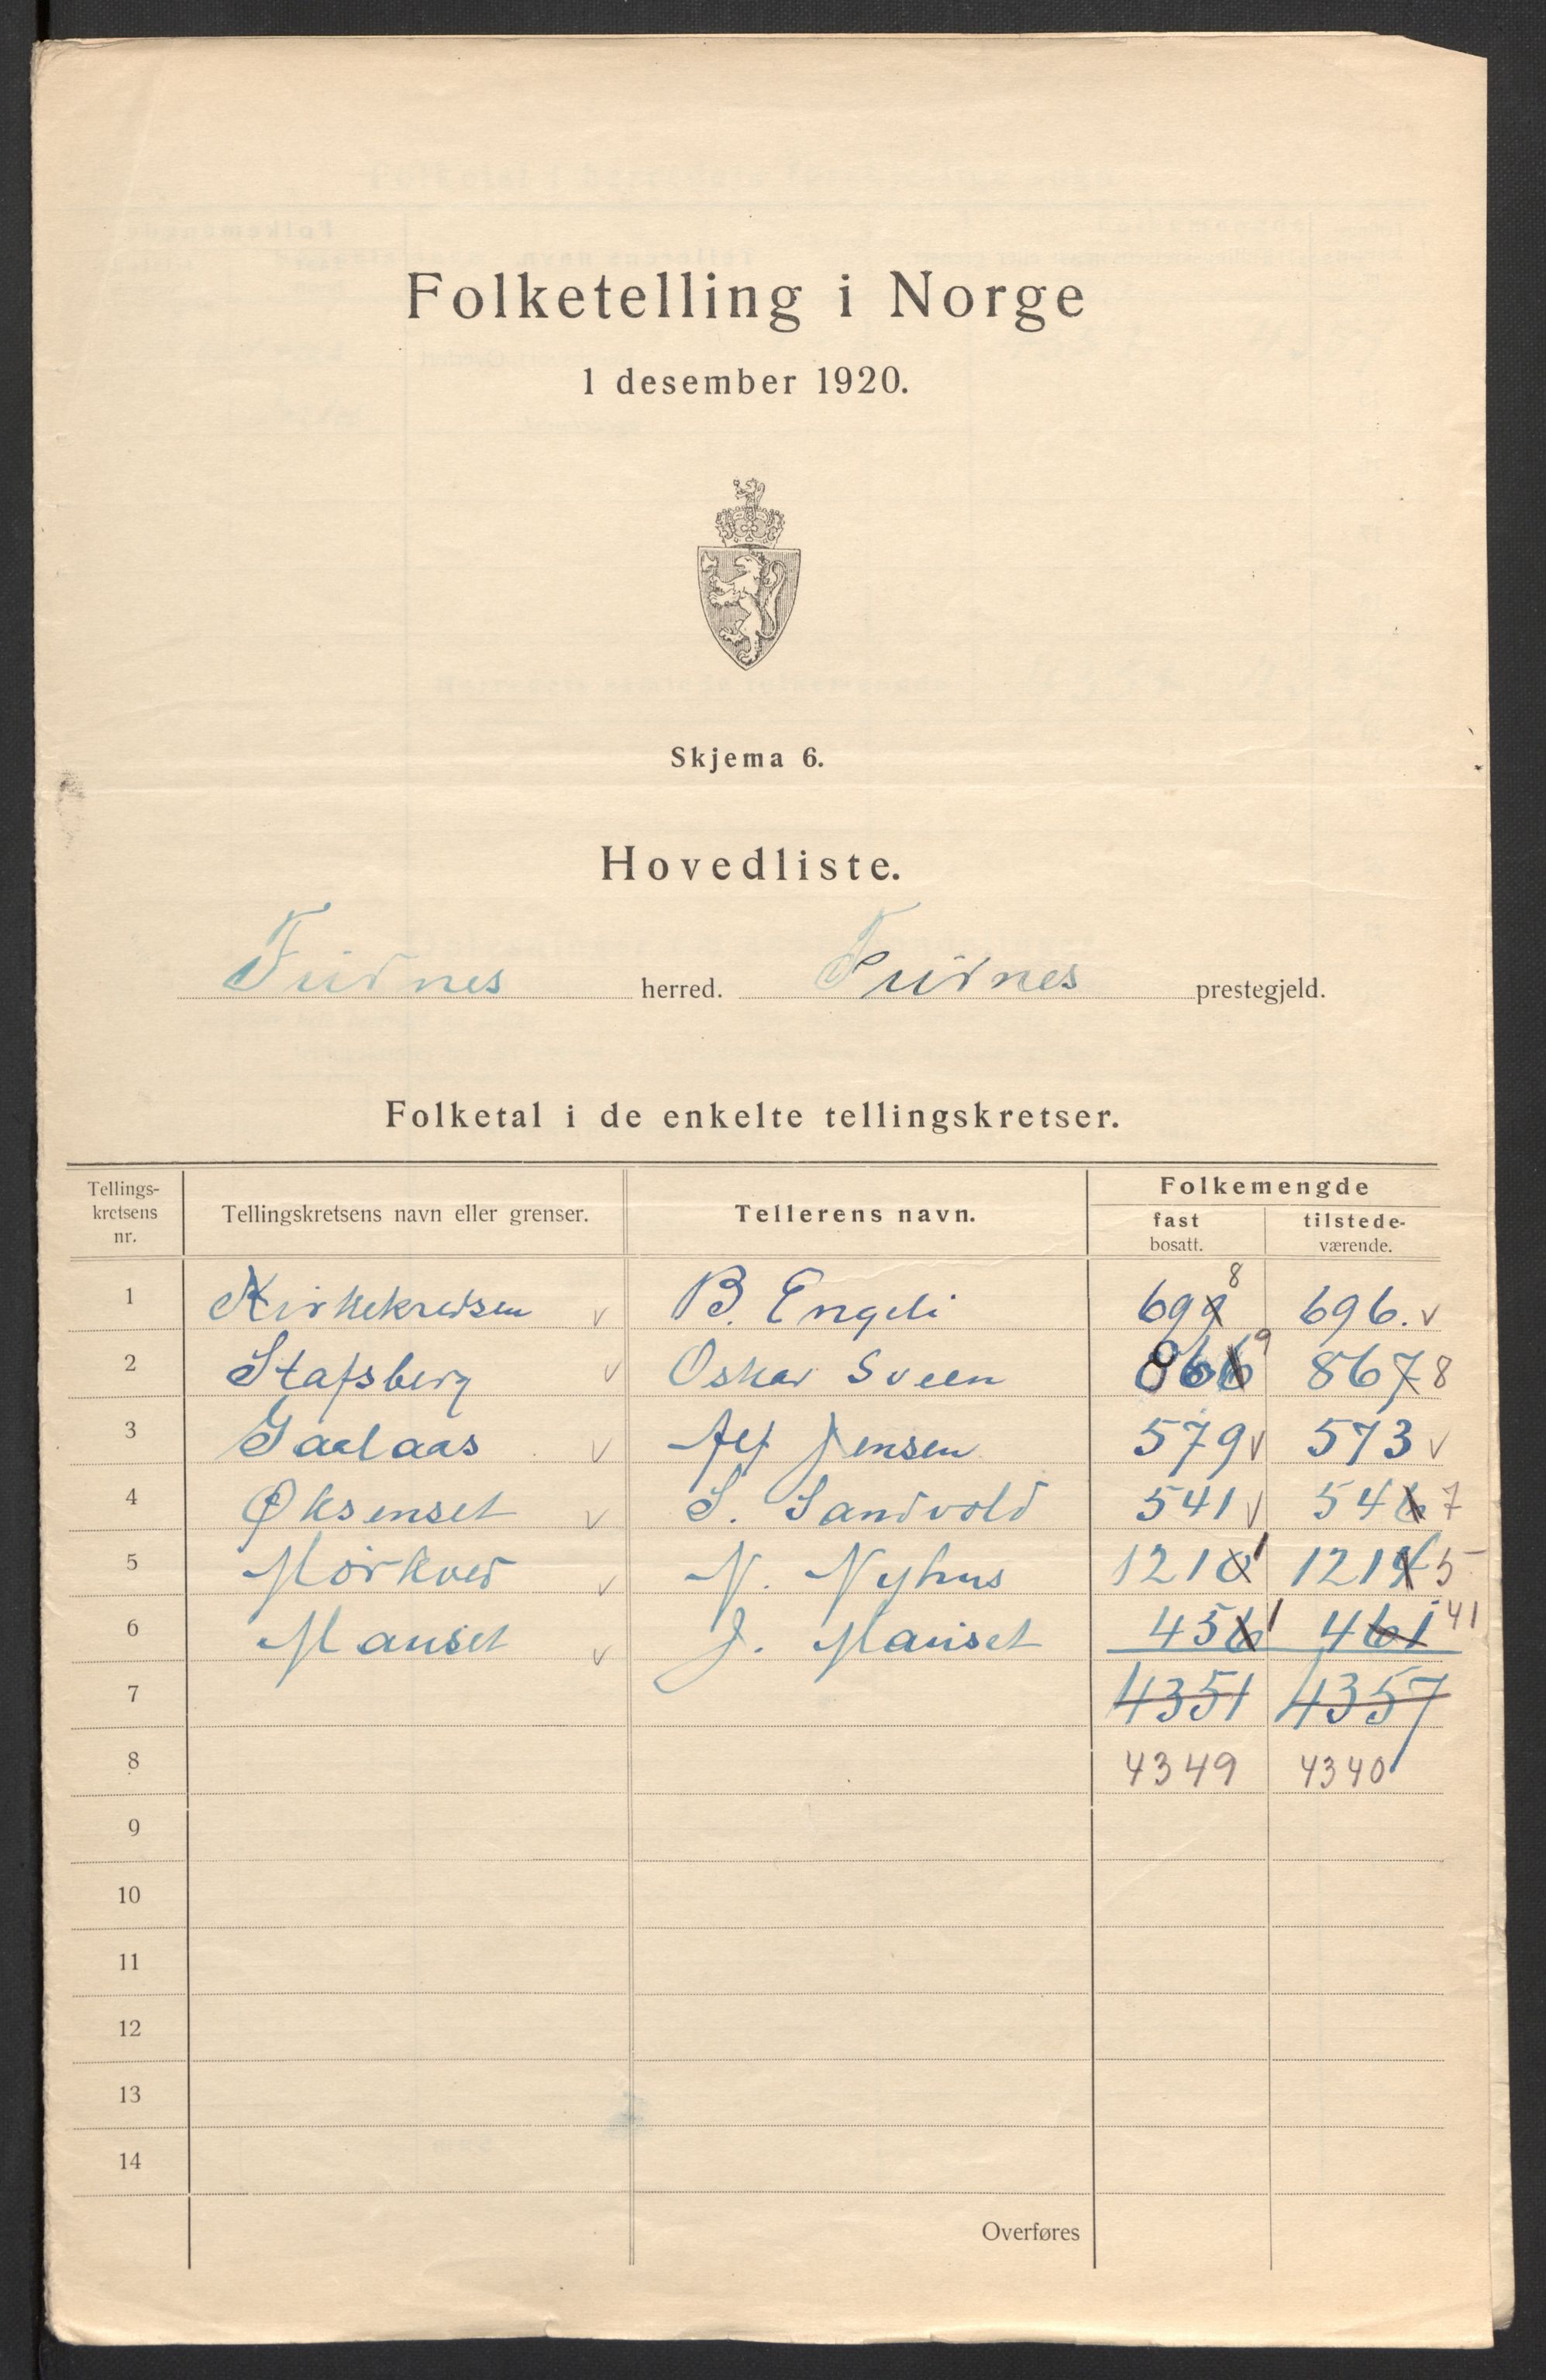 Folketelling i Norge
1 desember 1920.
Skjema 6.
Hovedliste.
Furnes herred. Furnes prestegjeld.
Folketal i de enkelte tellingskretser.
Tellings-
kretsens
nr.
Tellingskretsens navn eller grenser.
Tellerens navn.
Folkemengde
fast
bosatt.
tilstede-
værende.
1 Kirkekredsen v B. Engeli 699 8 696. v
2 Stafsberg v Oskar Sveen 866 9 867 8
3 Gaalaas v Alf Jensen 579 v 573 v
4 Øksenset v S. Sandvold 541 v 546 7
5 Mørkved v N. Nyhus 1210 1 1214 5
6 Mauset v J. Mauset 456 1 461 41
7 4351 4357
8 4349 4340
9
10
11
12
13
14
Overføres